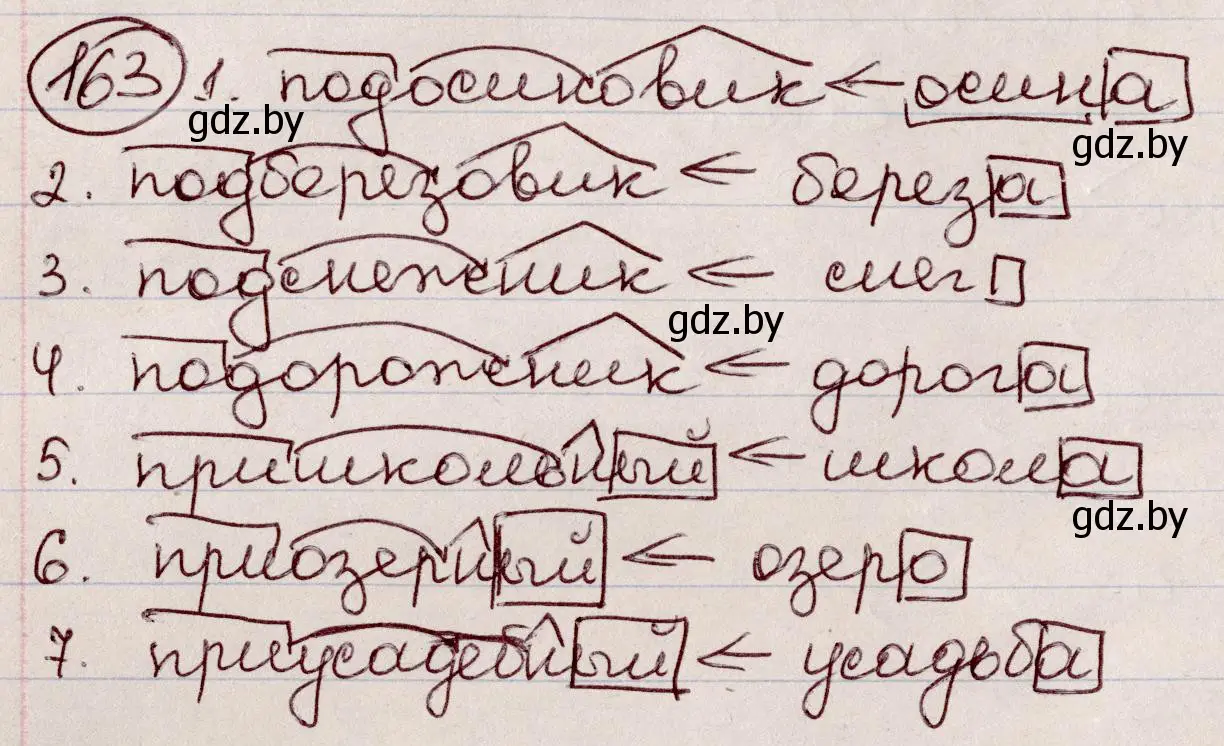 163 1. подосиновик ← осина
gdz.by gdz.by
2. подберезовик ← береза
3. подснежник ← снег
gdz.by
4. подорожник ← дорога
5. пришкольный ← школа
gdz.by
6. приозерный ← озеро
7. приусадебный ← усадьба